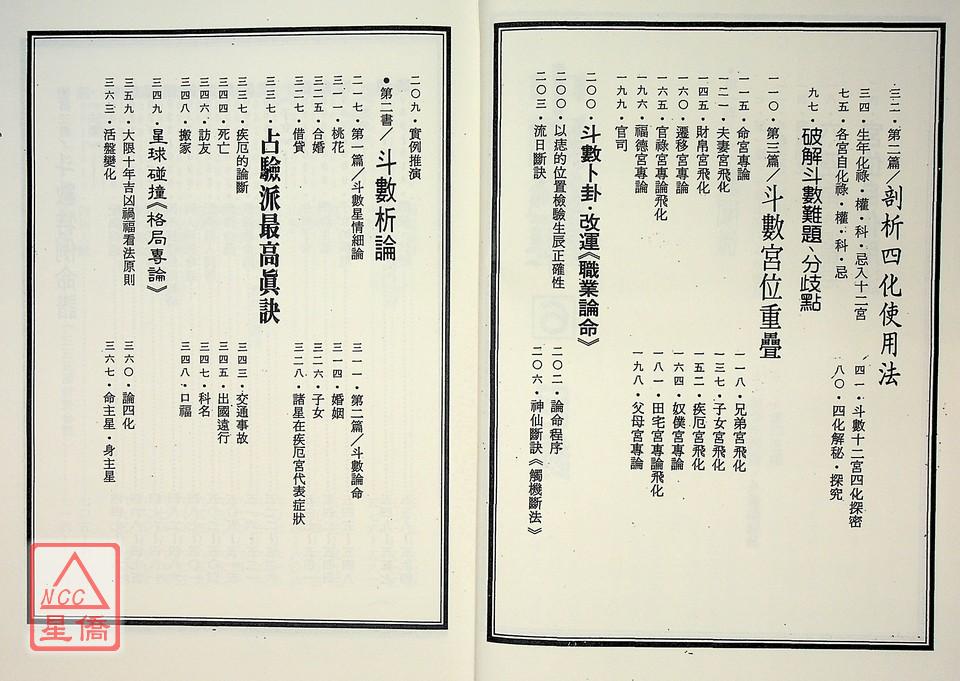 三二・第二篇／剖析四化使用法
三四・生年化祿・權・科・忌入十二宮
四一・斗數十二宮四化探密
七五・各宮自化祿・權・科・忌
八〇・四化解秘・探究
九七・破解斗數難題、分歧點
一一〇・第三篇／斗數宮位重疊
一一五・命宮專論
一一八・兄弟宮飛化
一二一・夫妻宮飛化
一三七・子女宮飛化
一四五・財帛宮飛化
一五二・疾厄宮飛化
一六〇・遷移宮專論
一六四・奴僕宮專論
一六五・官祿宮專論飛化
一八一・田宅宮專論飛化
一九六・福德宮專論
一九八・父母宮專論
一九九・官司
二〇〇・斗數卜卦・改運《職業論命》
二〇〇・以痣的位置檢驗生辰正確性
二〇二・論命程序
二〇三・流日斷訣
二〇六・神仙斷訣《觸機斷法》
二〇九・實例推演
●第二書／斗數析論
二一七・第一篇／斗數星情細論
三一一・第二篇／斗數論命
三一一・桃花
三一四・婚姻
三二五・合婚
三二六・子女
三二七・借貸
三二八・諸星在疾厄宮代表症狀
三三七・占驗派最高眞訣
三三七・疾厄的論斷
三四三・交通事故
三四四・死亡
三四五・出國遠行
三四六・訪友
三四七・科名
三四八・搬家
三四八・口福
三四九・星球碰撞《格局專論》
三五九・大限十年吉凶禍福看法原則
三六〇・論四化
三六三・活盤變化
三六七・命主星・身主星
NCC
星僑